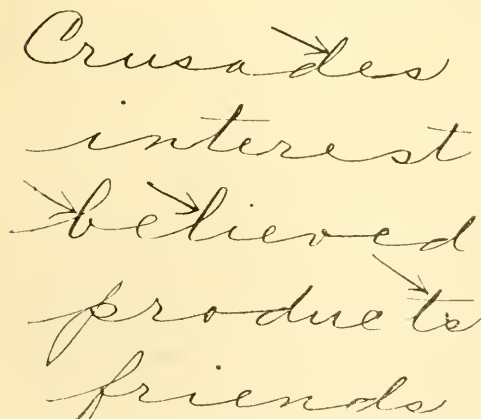 Crusades
interest
believed
products
friends